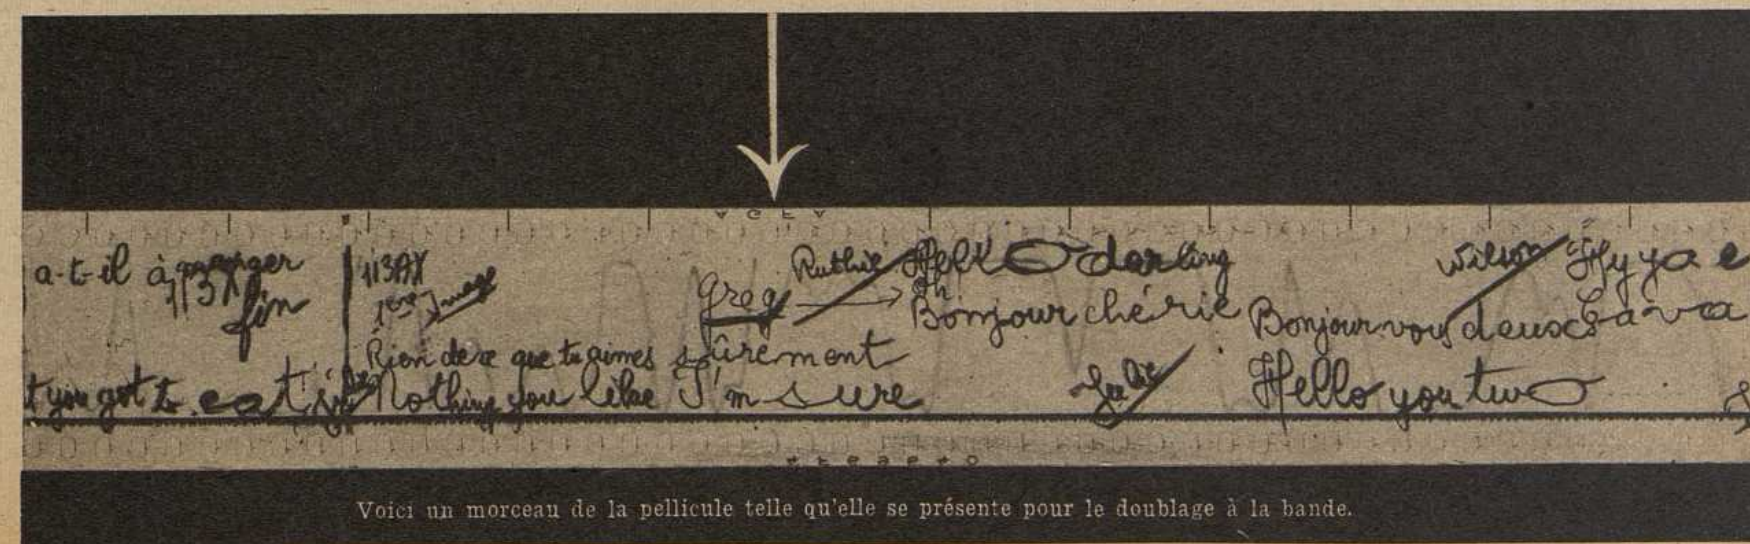 a-t-il à manger
113X
fin
113AX
1ère Image
Greg
Ruthie
Hello darling
Oh
Bonjour chérie
Wilson
Hy ya
Bonjour vous deux
Ça va
Rien de ce que tu aimes sûrement
t you got to eat
Nothing you like I'm sure
Julie
Hello you two
AGFA
Voici un morceau de la pellicule telle qu'elle se présente pour le doublage à la bande.